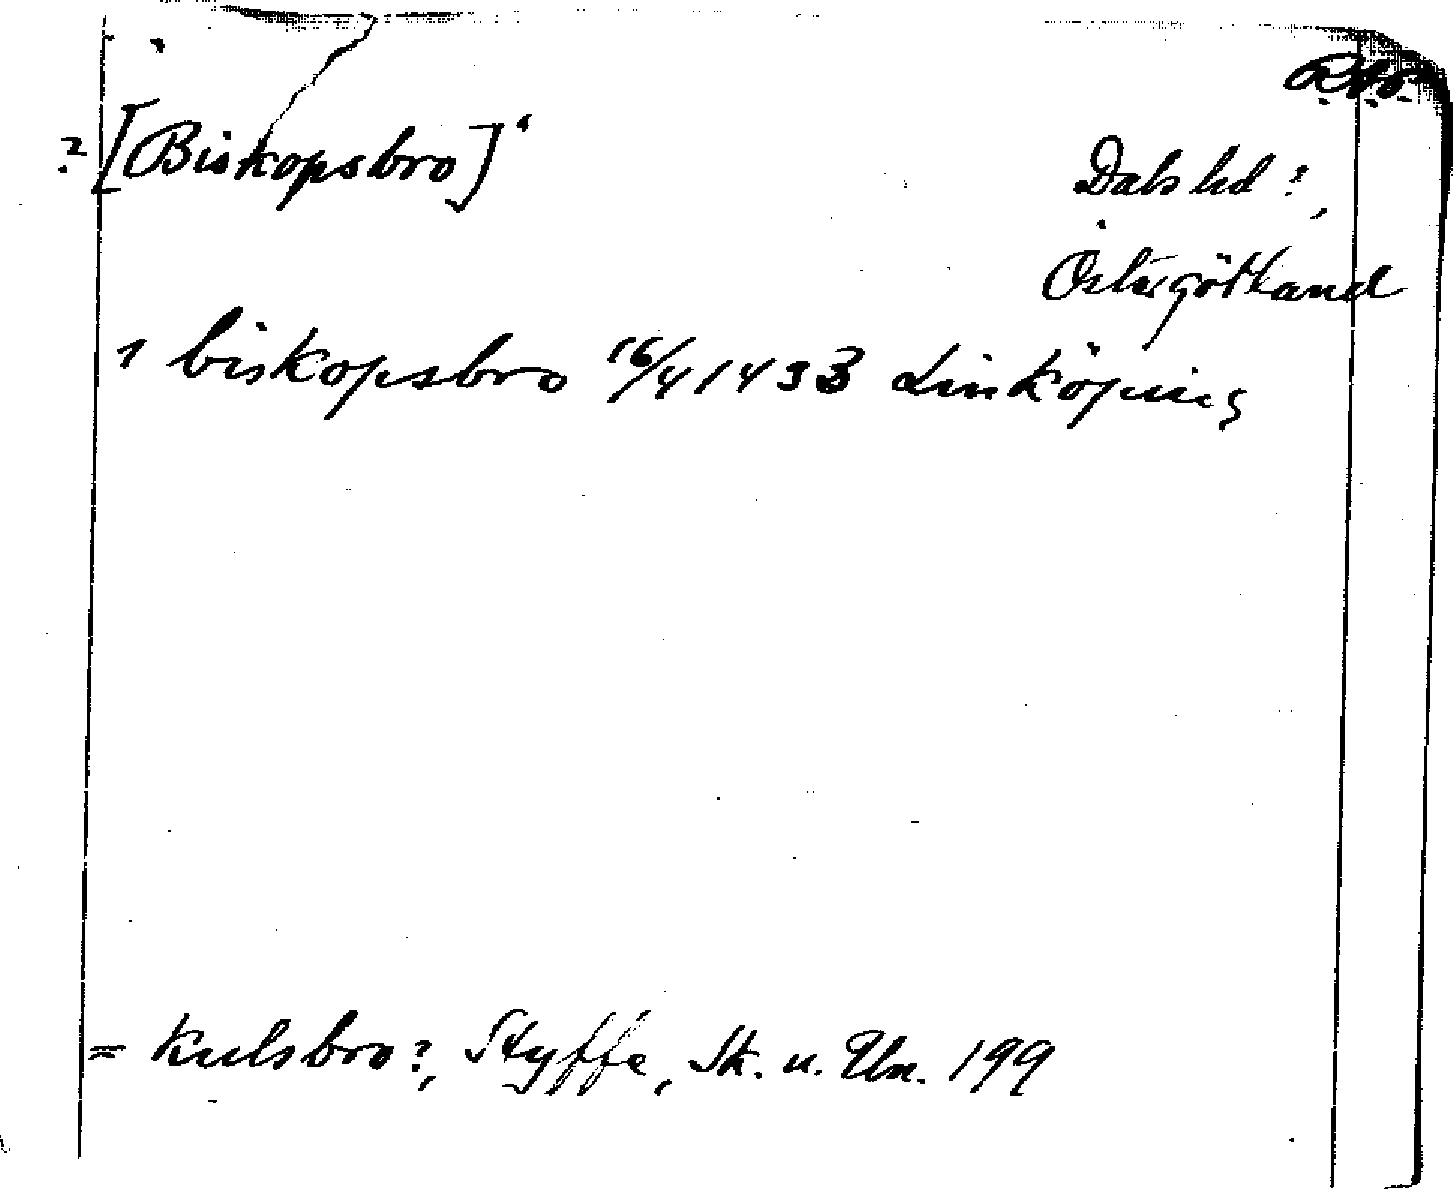 ? [Biskopsbro]
Dals hd ?,
Östergötland
1 biskopsbro 16/4 1433 Linköping
= Kulsbro?, Styffe, Sk. u. Un. 199